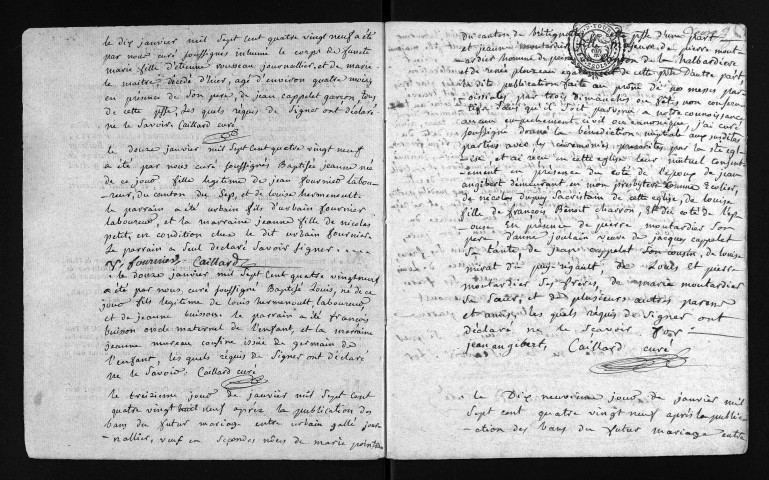 le dix janvier mil sept cent quatre vingt neuf a été
par nous curé soussigné inhumé le corps de feuete
marie fille d'etienne rousseau journallier, et de marie
le maitre, décédé d'hier, agé d'environ quatre mois,
en presence de son pere, de jean cappelet garson, tous
de cette psse, les quels requis de signer ont déclaré
ne le savoir. Caillard curé
le douze janvier mil sept cent quatre vingt neuf
a été par nous curé soussigné Baptisée jeanne née
de ce jour fille legitime de jean fournier labou-
reur, du canton du Sep, et de louise hermenoult.
le parrain a été urbain fils d'urbain fournier
laboureur et la marraine jeanne fille de nicolas
petit, en condition chez le dit urbain fournier
le parrain a seul déclaré savoir signer . . . .
V. fournier Caillard
le douze janvier mil sept cent quatre vingt neuf
a été par nous, curé soussigné Baptisé louis, né de ce
jour fils legitime de louis hermenoult laboureur
et de jeanne buisson. le parrain a été françois
buisson oncle maternel de l'enfant, et la marraine
jeanne mureau cousine issüe de germain de
l'enfant, les quels requis de signer ont déclaré
ne le savoir. Caillard curé
le treizième jour de janvier mil sept cent
quatre vingt neuf après la publication des
bans du futur mariage entre urbain gallé jour
nallier, veuf en secondes nôces de marie pointeau
du canton de cette psse d'une part
et jeanne moutardier de pierre mout-
ardier homme de peine de la halbardiere
et de renée pluzeau de cette psse d'autre part
la dite publication faite au prône de nos messes par-
oissiales par trois dimanches ou fêtes non consecu-
tifs sans qu'il soit parvenu a notre connoissance
aucun empechement civil ou canonique, j'ai curé
soussigné donné la bénédiction nuptiale aux susdites
parties avec les cérémonies prescrites par la ste egl-
ise, et ai reçu en cette eglise leur mutuel consent-
ement en presence du coté de l'epoux de jean
angibert demeurant en mon presbytere comme Ecolier,
de nicolas dupuy sacristain de cette eglise, de louise
fille de françois Benoit charron, et du coté de l'ep-
ouse en presence de pierre moutardier son
pere d'anne joulain veuve de jacques cappelet
sa tante, de jean cappelet son cousin, de louise
mirat du puy-rigault, de louis et pierre
moutardier ses freres, de marie moutardier
sa sœur, et de plusieurs autres parens
et amis, les quels requis de signer ont
déclaré ne le sçavoir fors
jean angibert, Caillard curé
le Dix neuvieme jour de janvier mil
sept cent quatre vingt neuf après la public-
ation des bans du futur mariage entre